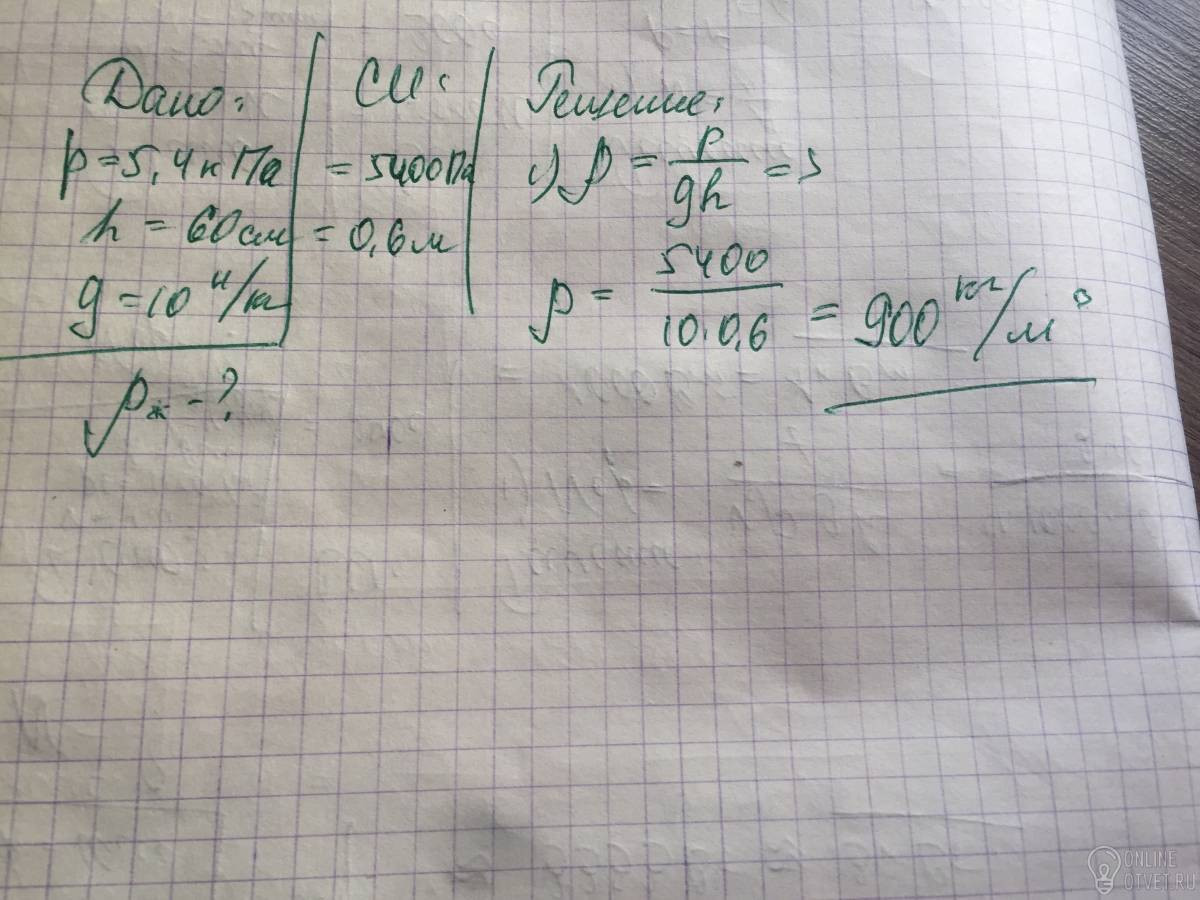 Дано:
p = 5,4 кПа
h = 60 см
g = 10 Н/кг
ρж - ?
СИ:
= 5400 Па
= 0,6 м
Решение:
1) ρ = p/gh =>
ρ = 5400/10·0,6 = 900 кг/м³
ONLINE
OTVET.RU